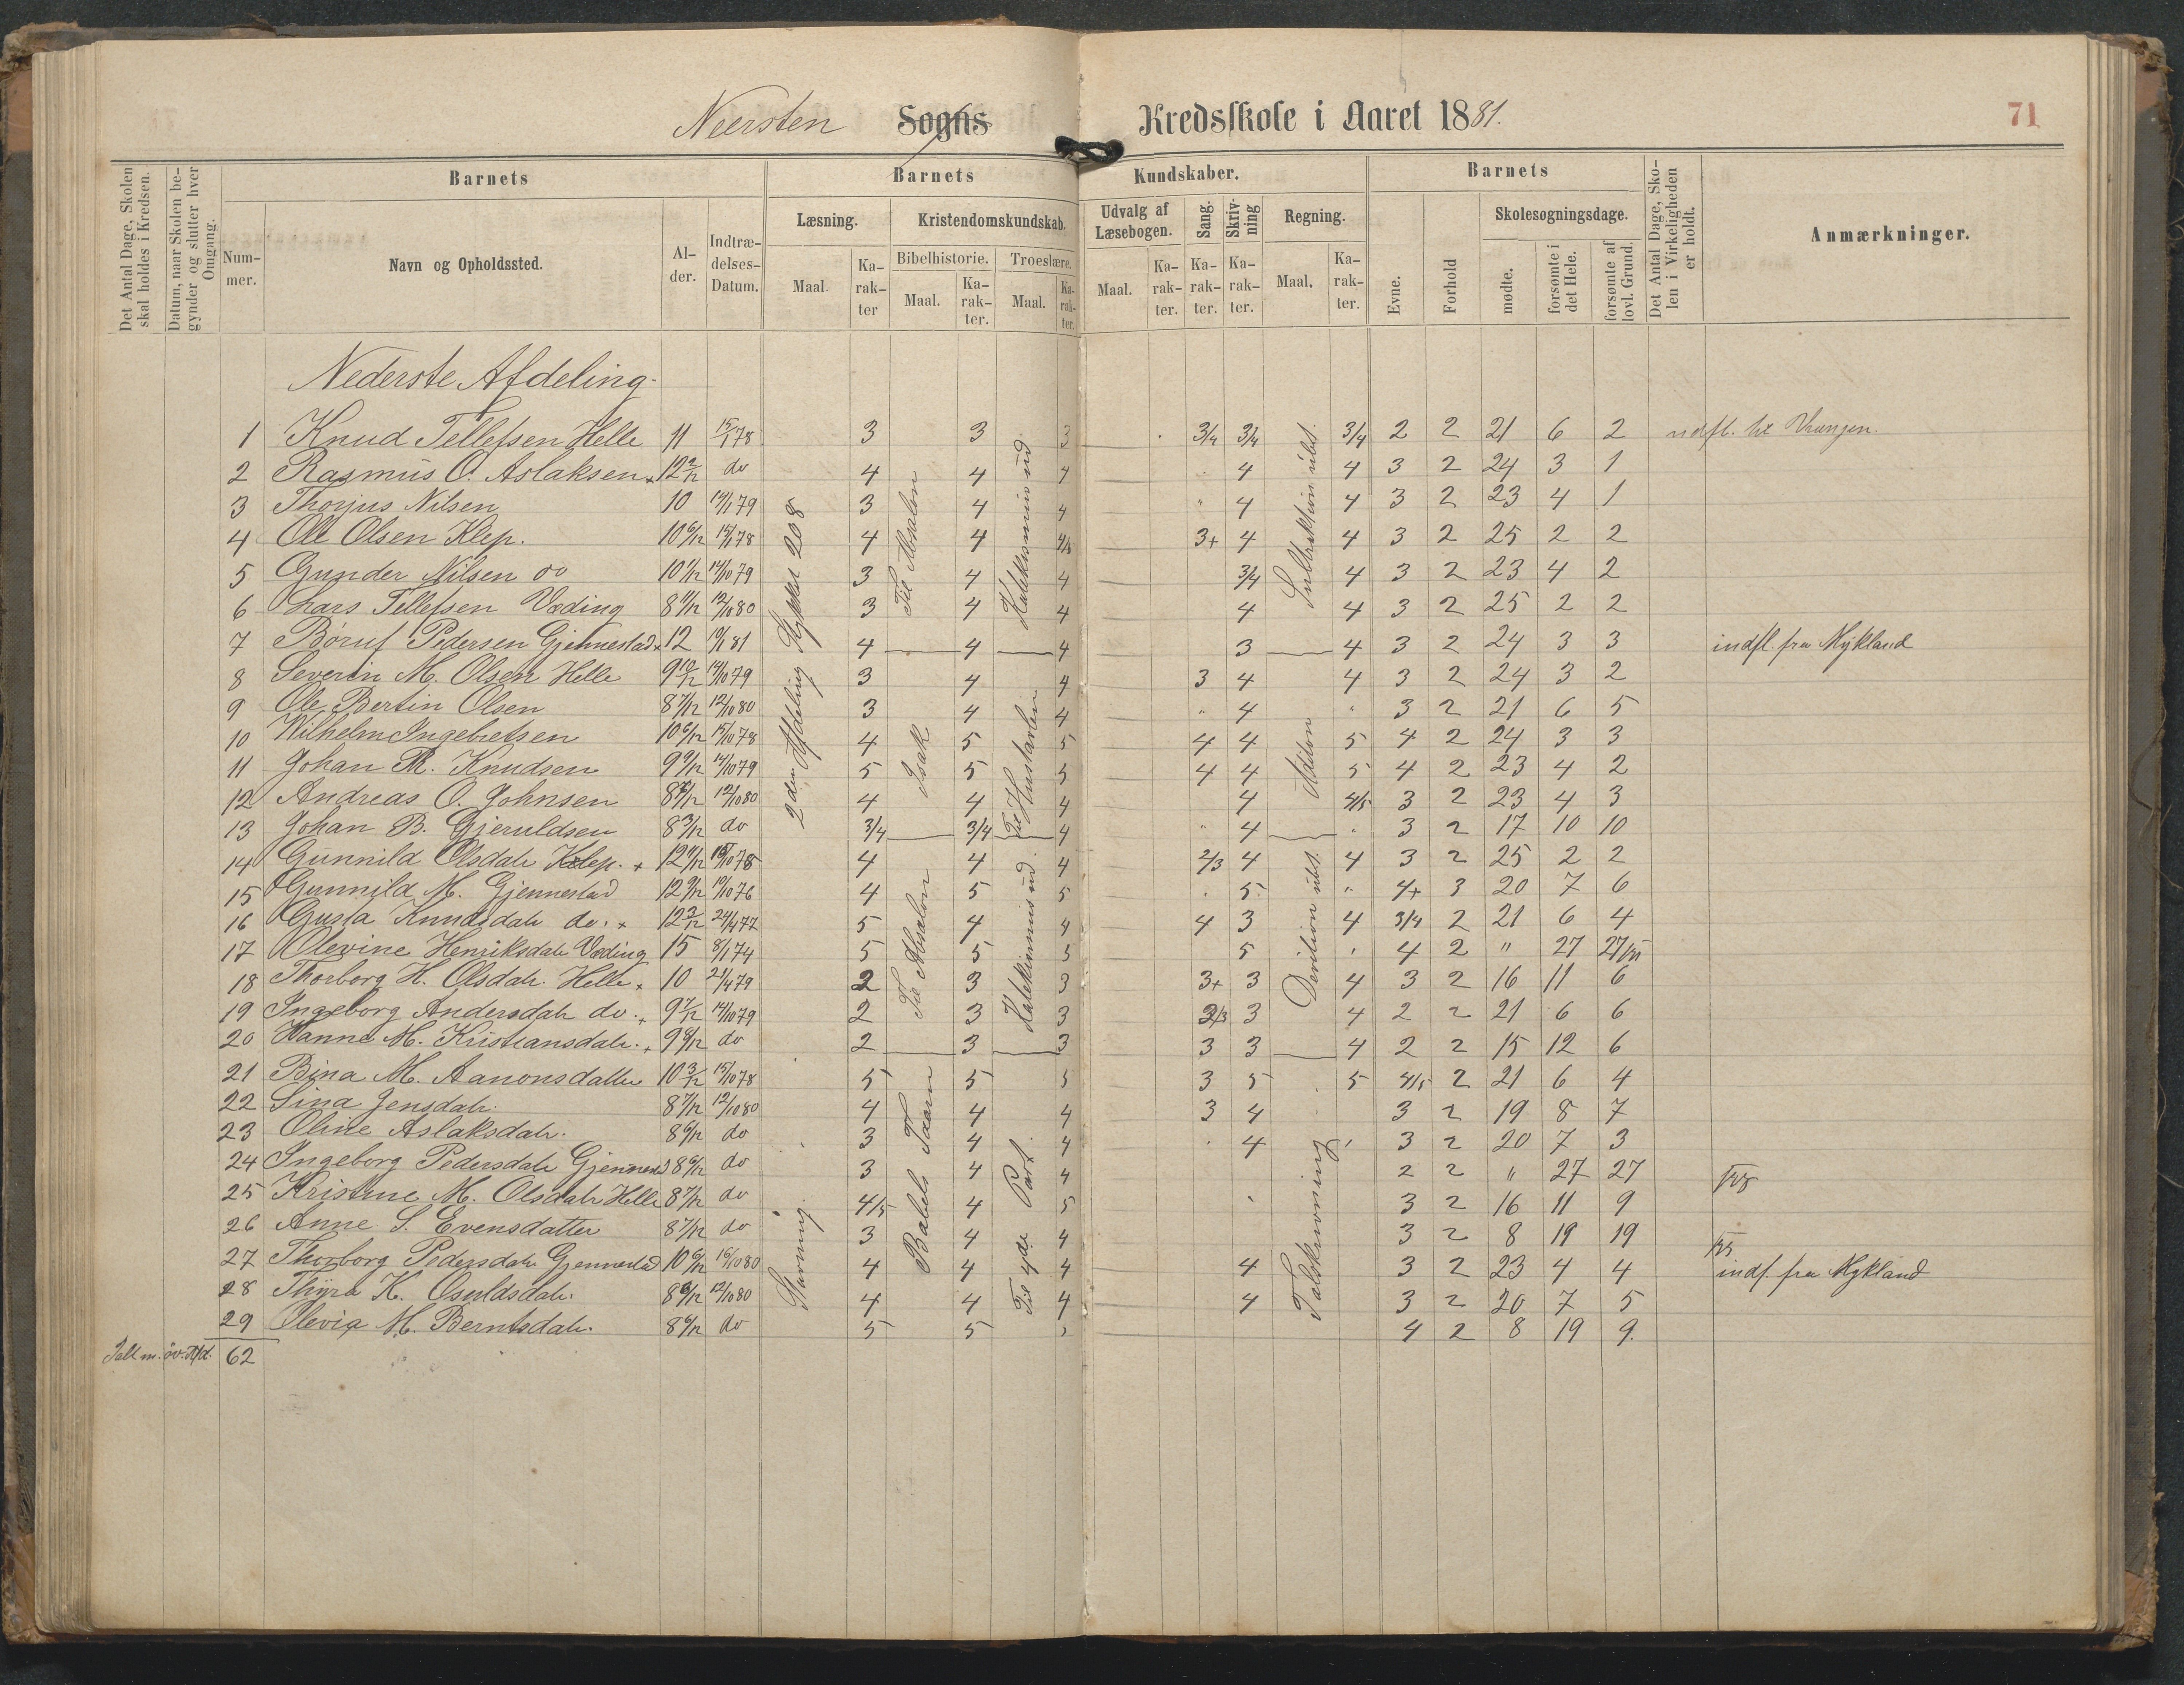 Neersten Sogns Kredsskole i Aaret 1881.
71
Det Antal Dage, Skolen skal holdes i Kredsen.
Datum, naar Skolen begynder og slutter hver Omgang.
Barnets
Nummer.
Navn og Opholdssted.
Alder.
Indtrædelses-Datum.
Barnets Kundskaber.
Læsning.
Maal.
Karakter
Kristendomskundskab.
Bibelhistorie.
Maal.
Karakter.
Troeslære.
Maal.
Karakter.
Udvalg af Læsebogen.
Maal.
Karakter.
Sang.
Karakter.
Skrivning
Karakter.
Regning.
Maal.
Karakter.
Barnets
Evne.
Forhold
Skolesøgningsdage.
mødte.
forsømte i det Hele.
forsømte af lovl. Grund.
Det Antal Dage, Skolen i Virkeligheden er holdt.
Anmærkninger.
Nederste Afdeling.
1 Knud Tellefsen Helle 11 15/1 78 3 3 3 3/4 3/4 3/4 2 2 21 6 2
2 Rasmus O. Aslaksen + 12 2/12 do 4 4 4 4 4 3 2 24 3 1
3 Thorjus Nilsen 10 14/1 79 3 4 4 " 4 4 3 2 23 4 1
4 Ole Olsen Klep. 10 6/12 15/1 78 4 4 4/3 3+ 4 4 3 2 25 2 2
5 Gunder Nilsen do 10 1/12 14/10 79 3 4 4 3/4 4 3 2 23 4 2
6 Lars Tellefsen Væding 8 11/12 12/10 80 3 4 4 4 4 3 2 25 2 2
7 Børuf Pedersen Gjennestad + 12 19/1 81 4 4 4 3 4 3 2 24 3 3 indfl. fra Mykland
8 Severin M. Olsen Helle 9 10/12 14/10 79 3 4 4 3 4 4 3 2 24 3 2
9 Ole Bertin Olsen 8 7/12 12/10 80 3 4 4 " 4 " 3 2 21 6 5
10 Wilhelm Ingebretsen 10 6/12 15/10 78 4 5 5 4 4 5 4 2 24 3 3
11 Johan R. Knudsen 9 9/12 14/10 79 5 5 5 4 4 5 4 2 23 4 2
12 Andreas O. Johnsen 8 7/12 12/10 80 4 4 4 4 4/5 3 2 23 4 3
13 Johan B. Gjeruldsen 8 3/12 do 3/4 3/4 4 " 4 " 3 2 17 10 10
14 Gunnild Olsdatr Klep. + 12 11/12 15/10 78 4 4 4 2/3 4 4 3 2 25 2 2
15 Gunnild M. Gjennestad 12 9/12 10/10 76 4 5 5 5 " 4+ 3 20 7 6
16 Gusta Knudsdatr do. + 12 2/12 24/4 77 5 4 4 4 3 4 3/4 2 21 6 4
17 Olevine Henriksdatr Væding 15 8/1 74 5 5 5 5 4 2 " 27 27
18 Thorborg H. Olsdatr. Helle + 10 21/4 79 2 3 3 3+ 3 4 3 2 16 11 6
19 Ingeborg Andersdatr do. + 9 7/12 14/10 79 2 3 3 2/3 3 4 2 2 21 6 6
20 Hanna M. Kristiansdatr. + 9 8/12 do 2 3 3 3 3 4 2 2 15 12 6
21 Bina M. Aanonsdatter 10 3/12 15/10 78 5 5 5 3 5 5 4/5 2 21 6 4
22 Sina Jensdatr. 8 7/12 12/10 80 4 4 4 3 4 3 2 19 8 7
23 Oline Aslaksdatr. 8 6/12 do 3 4 4 4 3 2 20 7 3
24 Ingeborg Pedersdatr Gjennes 8 6/12 do 3 4 4 2 2 " 27 27
25 Kristine M. Olsdatr Helle 8 7/12 do 4/5 4 5 3 2 16 11 9
26 Anne S. Evensdatter 8 7/12 do 3 4 4 3 2 8 19 19
27 Thorborg Pedersdatr Gjennestad 10 6/12 16/10 80 4 4 4 4 3 2 23 4 4 indf. fra Mykland
28 Thyra K. Osuldsdatr. 8 8/12 12/10 80 4 4 4 4 3 2 20 7 5
29 Olevia M. Berntsdatr. 8 6/12 do 5 5 4 2 8 19 9.
Ialt m. öv. Afd. 62
2den Afdeling Stykket 208
Stavning.
Til Absalon
Isak
Til Absalon
Babels Taarn
Til Hustavlen
Til 4de Part.
Addition
Talskrivning